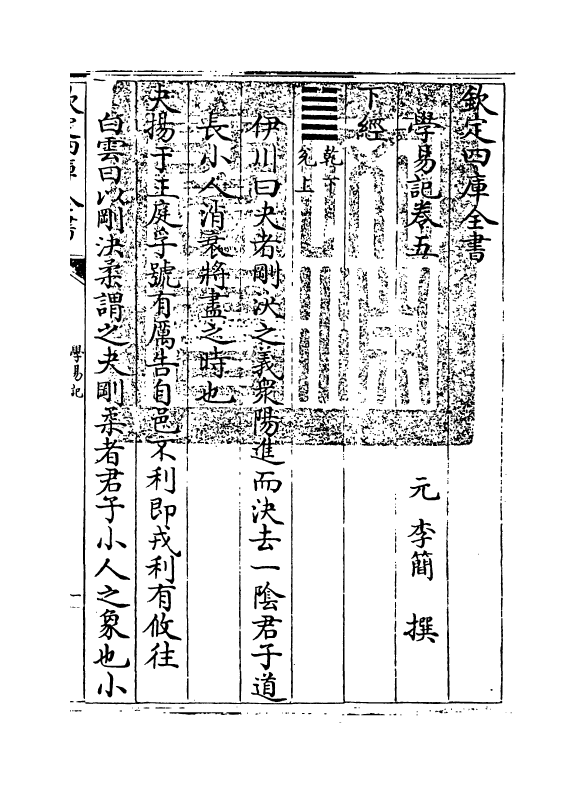 欽定四庫全書
學易記卷五
元 李簡 撰
下經
乾下
兌上
伊川曰夬者剛決之義衆陽進而決去一陰君子道
長小人消衰將盡之時也
夬揚于王庭孚號有厲告自邑不利即戎利有攸往
白雲曰以剛決柔謂之夬剛柔者君子小人之象也小
欽定四庫全書
學易記
一